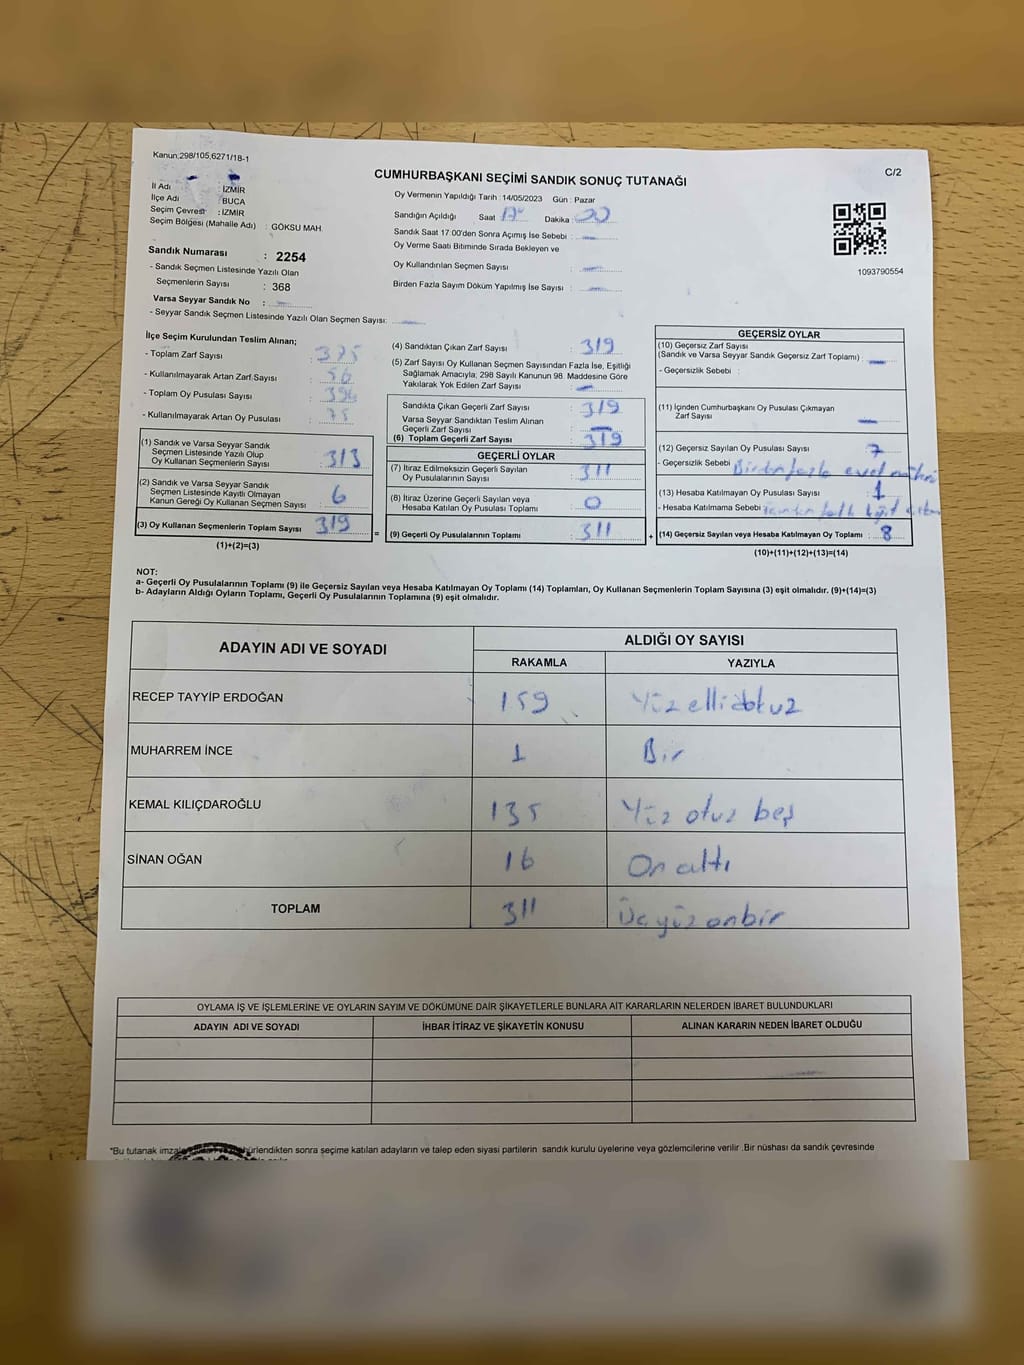 Kanun;298/105,6271/18-1
CUMHURBAŞKANI SEÇİMİ SANDIK SONUÇ TUTANAĞI
C/2
İl Adı : İZMİR
İlçe Adı : BUCA
Seçim Çevresi : İZMİR
Seçim Bölgesi (Mahalle Adı) : GÖKSU MAH.
Sandık Numarası : 2254
- Sandık Seçmen Listesinde Yazılı Olan
Seçmenlerin Sayısı : 368
Varsa Seyyar Sandık No :
- Seyyar Sandık Seçmen Listesinde Yazılı Olan Seçmen Sayısı:
Oy Vermenin Yapıldığı Tarih : 14/05/2023 Gün : Pazar
Sandığın Açıldığı Saat Dakika : 00
Sandık Saat 17.00'den Sonra Açımış İse Sebebi :
Oy Verme Saati Bitiminde Sırada Bekleyen ve
Oy Kullandırılan Seçmen Sayısı :
Birden Fazla Sayım Döküm Yapılmış İse Sayısı :
1093790554
İlçe Seçim Kurulundan Teslim Alınan;
- Toplam Zarf Sayısı : 375
- Kullanılmayarak Artan Zarf Sayısı : 56
- Toplam Oy Pusulası Sayısı :
- Kullanılmayarak Artan Oy Pusulası : 75
(1) Sandık ve Varsa Seyyar Sandık
Seçmen Listesinde Yazılı Olup
Oy Kullanan Seçmenlerin Sayısı : 313
(2) Sandık ve Varsa Seyyar Sandık
Seçmen Listesinde Kayıtlı Olmayan
Kanun Gereği Oy Kullanan Seçmen Sayısı : 6
(3) Oy Kullanan Seçmenlerin Toplam Sayısı : 319
(1)+(2)=(3)
(4) Sandıktan Çıkan Zarf Sayısı : 319
(5) Zarf Sayısı Oy Kullanan Seçmen Sayısından Fazla İse, Eşitliği
Sağlamak Amacıyla; 298 Sayılı Kanunun 98. Maddesine Göre
Yakılarak Yok Edilen Zarf Sayısı :
Sandıkta Çıkan Geçerli Zarf Sayısı : 319
Varsa Seyyar Sandıktan Teslim Alınan
Geçerli Zarf Sayısı :
(6) Toplam Geçerli Zarf Sayısı : 319
GEÇERLİ OYLAR
(7) İtiraz Edilmeksizin Geçerli Sayılan
Oy Pusulalarının Sayısı : 311
(8) İtiraz Üzerine Geçerli Sayılan veya
Hesaba Katılan Oy Pusulası Toplamı : 0
= (9) Geçerli Oy Pusulalarının Toplamı : 311 +
GEÇERSİZ OYLAR
(10) Geçersiz Zarf Sayısı
(Sandık ve Varsa Seyyar Sandık Geçersiz Zarf Toplamı) :
- Geçersizlik Sebebi :
(11) İçinden Cumhurbaşkanı Oy Pusulası Çıkmayan
Zarf Sayısı :
(12) Geçersiz Sayılan Oy Pusulası Sayısı : 7
- Geçersizlik Sebebi : Birden fazla evet mührü
(13) Hesaba Katılmayan Oy Pusulası Sayısı : 1
- Hesaba Katılmama Sebebi :
(14) Geçersiz Sayılan veya Hesaba Katılmayan Oy Toplamı : 8
(10)+(11)+(12)+(13)=(14)
NOT:
a- Geçerli Oy Pusulalarının Toplamı (9) ile Geçersiz Sayılan veya Hesaba Katılmayan Oy Toplamı (14) Toplamları, Oy Kullanan Seçmenlerin Toplam Sayısına (3) eşit olmalıdır. (9)+(14)=(3)
b- Adayların Aldığı Oyların Toplamı, Geçerli Oy Pusulalarının Toplamına (9) eşit olmalıdır.
ADAYIN ADI VE SOYADI ALDIĞI OY SAYISI
RAKAMLA YAZIYLA
RECEP TAYYİP ERDOĞAN 159 Yüz elli dokuz
MUHARREM İNCE 1 Bir
KEMAL KILIÇDAROĞLU 135 Yüz otuz beş
SİNAN OĞAN 16 On altı
TOPLAM 311 Üç yüz onbir
OYLAMA İŞ VE İŞLEMLERİNE VE OYLARIN SAYIM VE DÖKÜMÜNE DAİR ŞİKAYETLERLE BUNLARA AİT KARARLARIN NELERDEN İBARET BULUNDUKLARI
ADAYIN ADI VE SOYADI İHBAR İTİRAZ VE ŞİKAYETİN KONUSU ALINAN KARARIN NEDEN İBARET OLDUĞU
"Bu tutanak sonra seçime katılan adayların ve talep eden siyasi partilerin sandık kurulu üyelerine veya gözlemcilerine verilir .Bir nüshası da sandık çevresinde